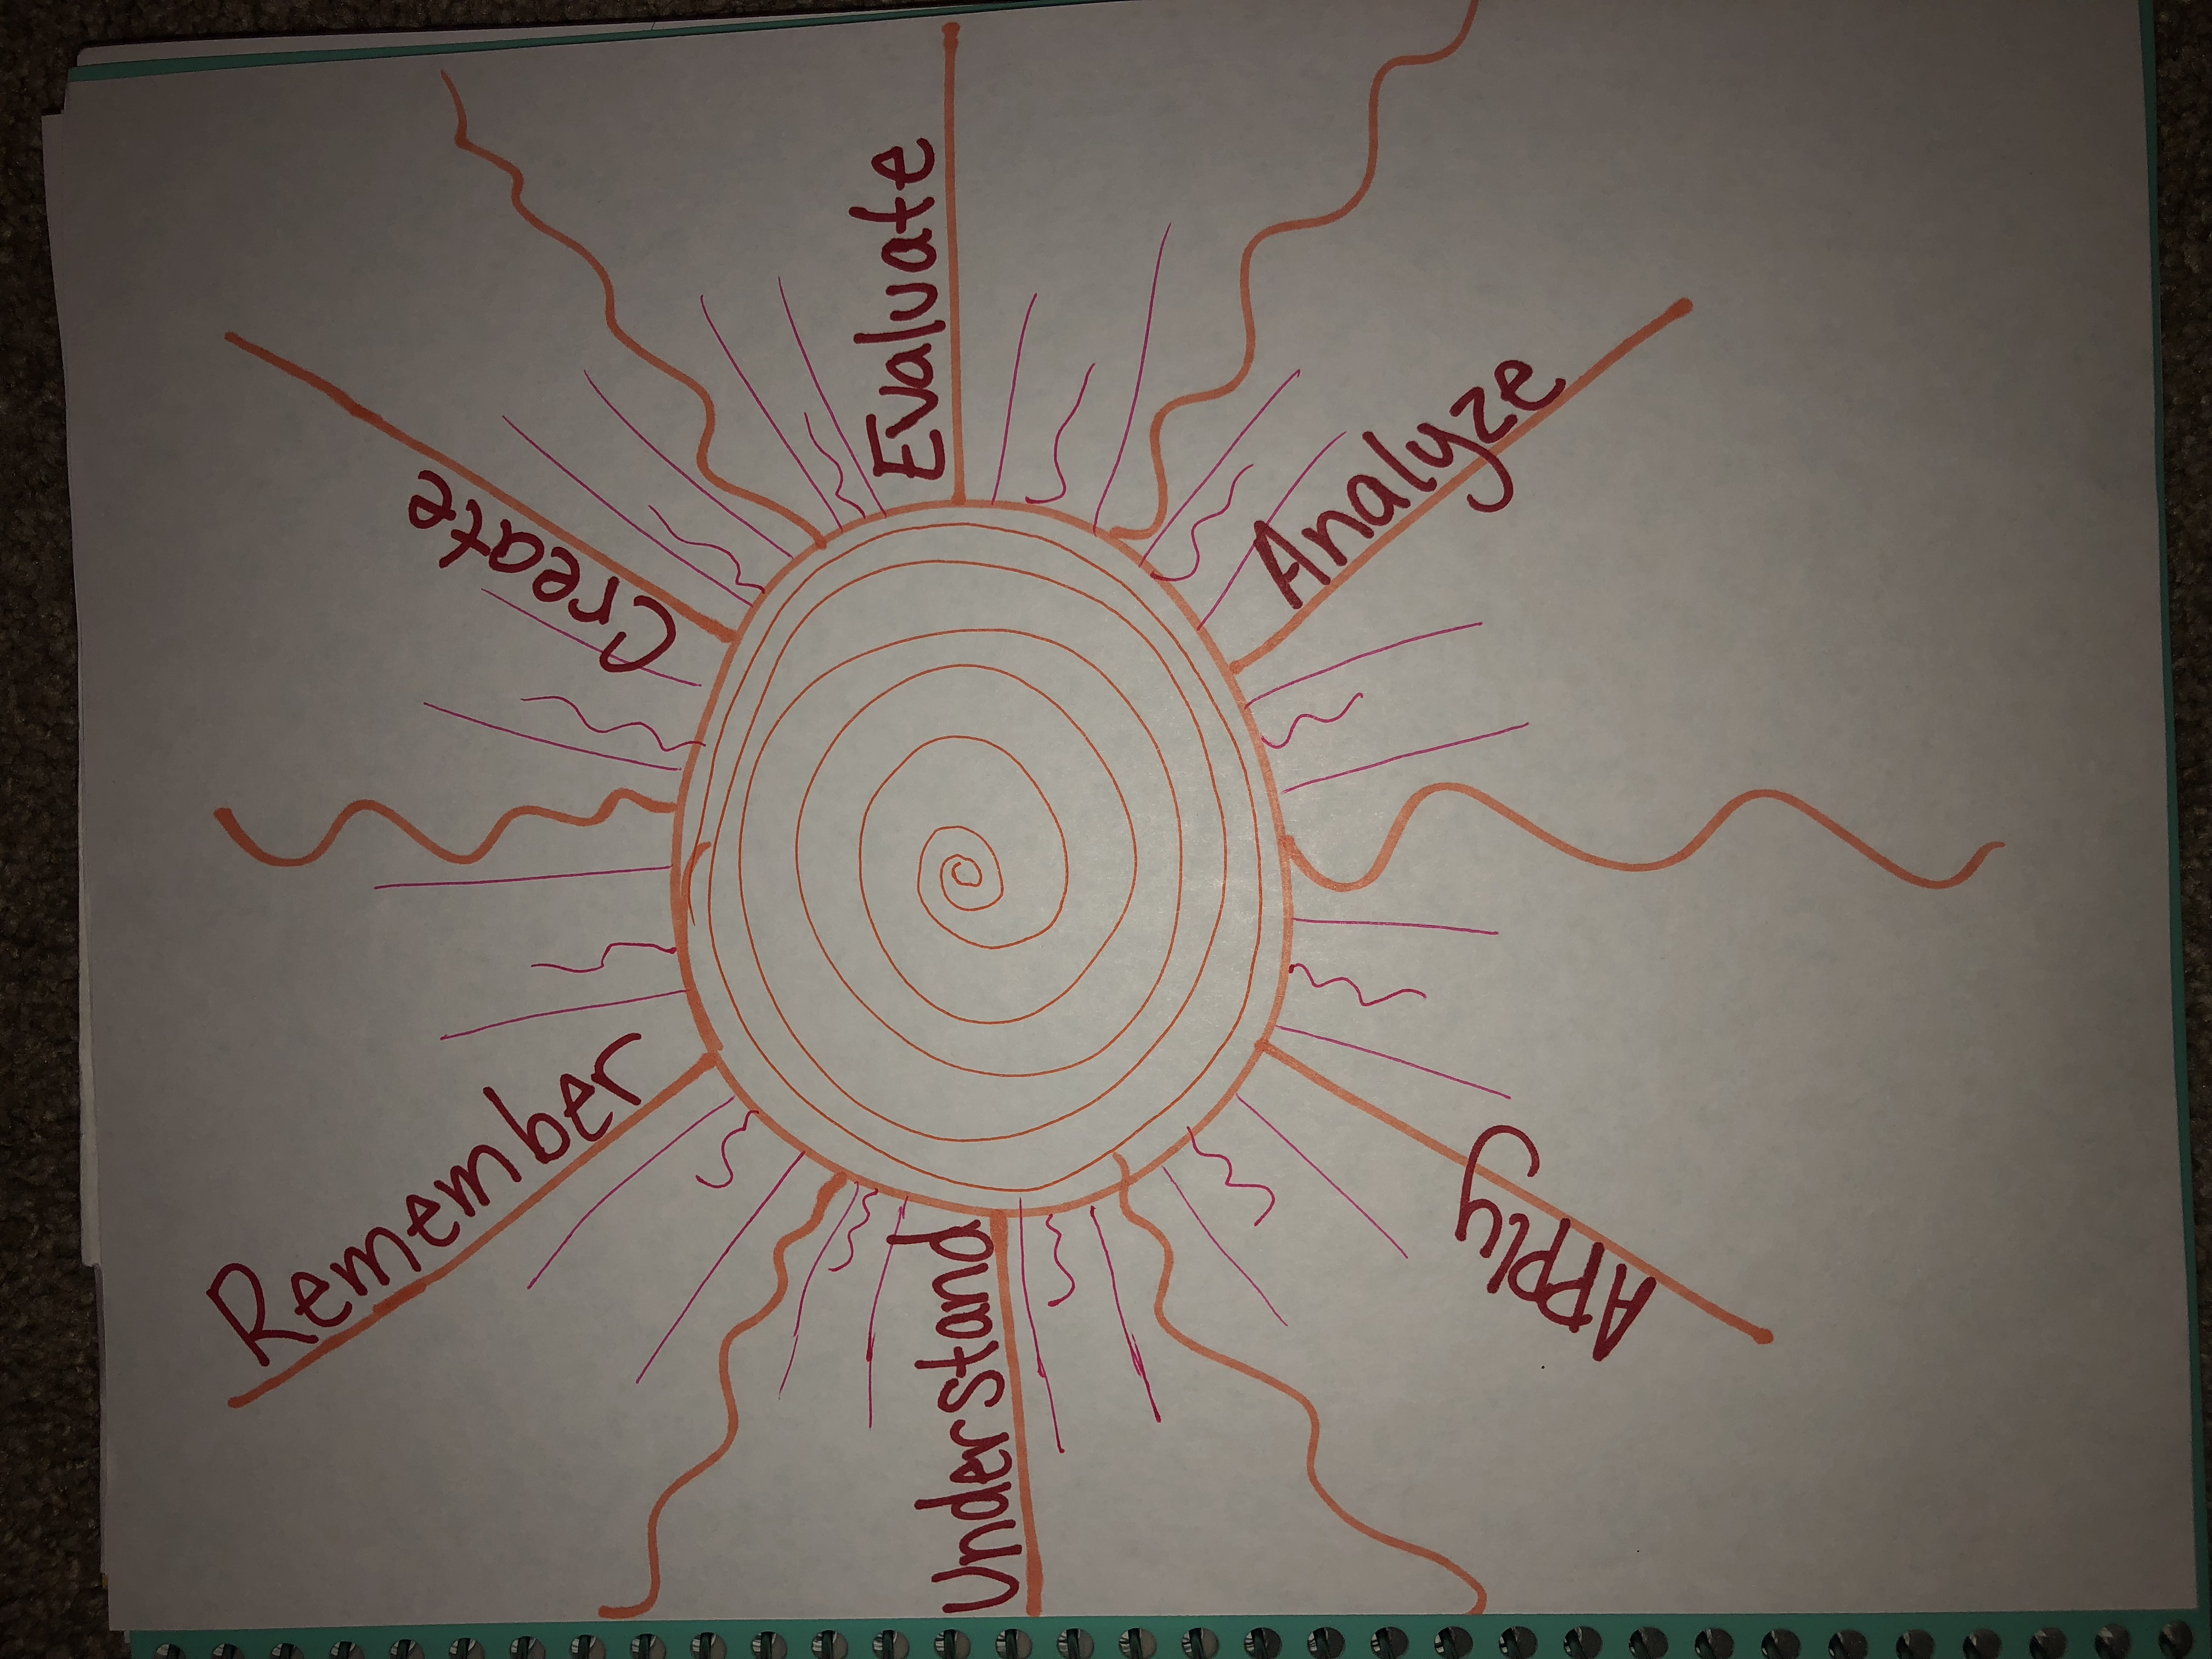 Remember
Create
Understand
Evaluate
Apply
Analyze